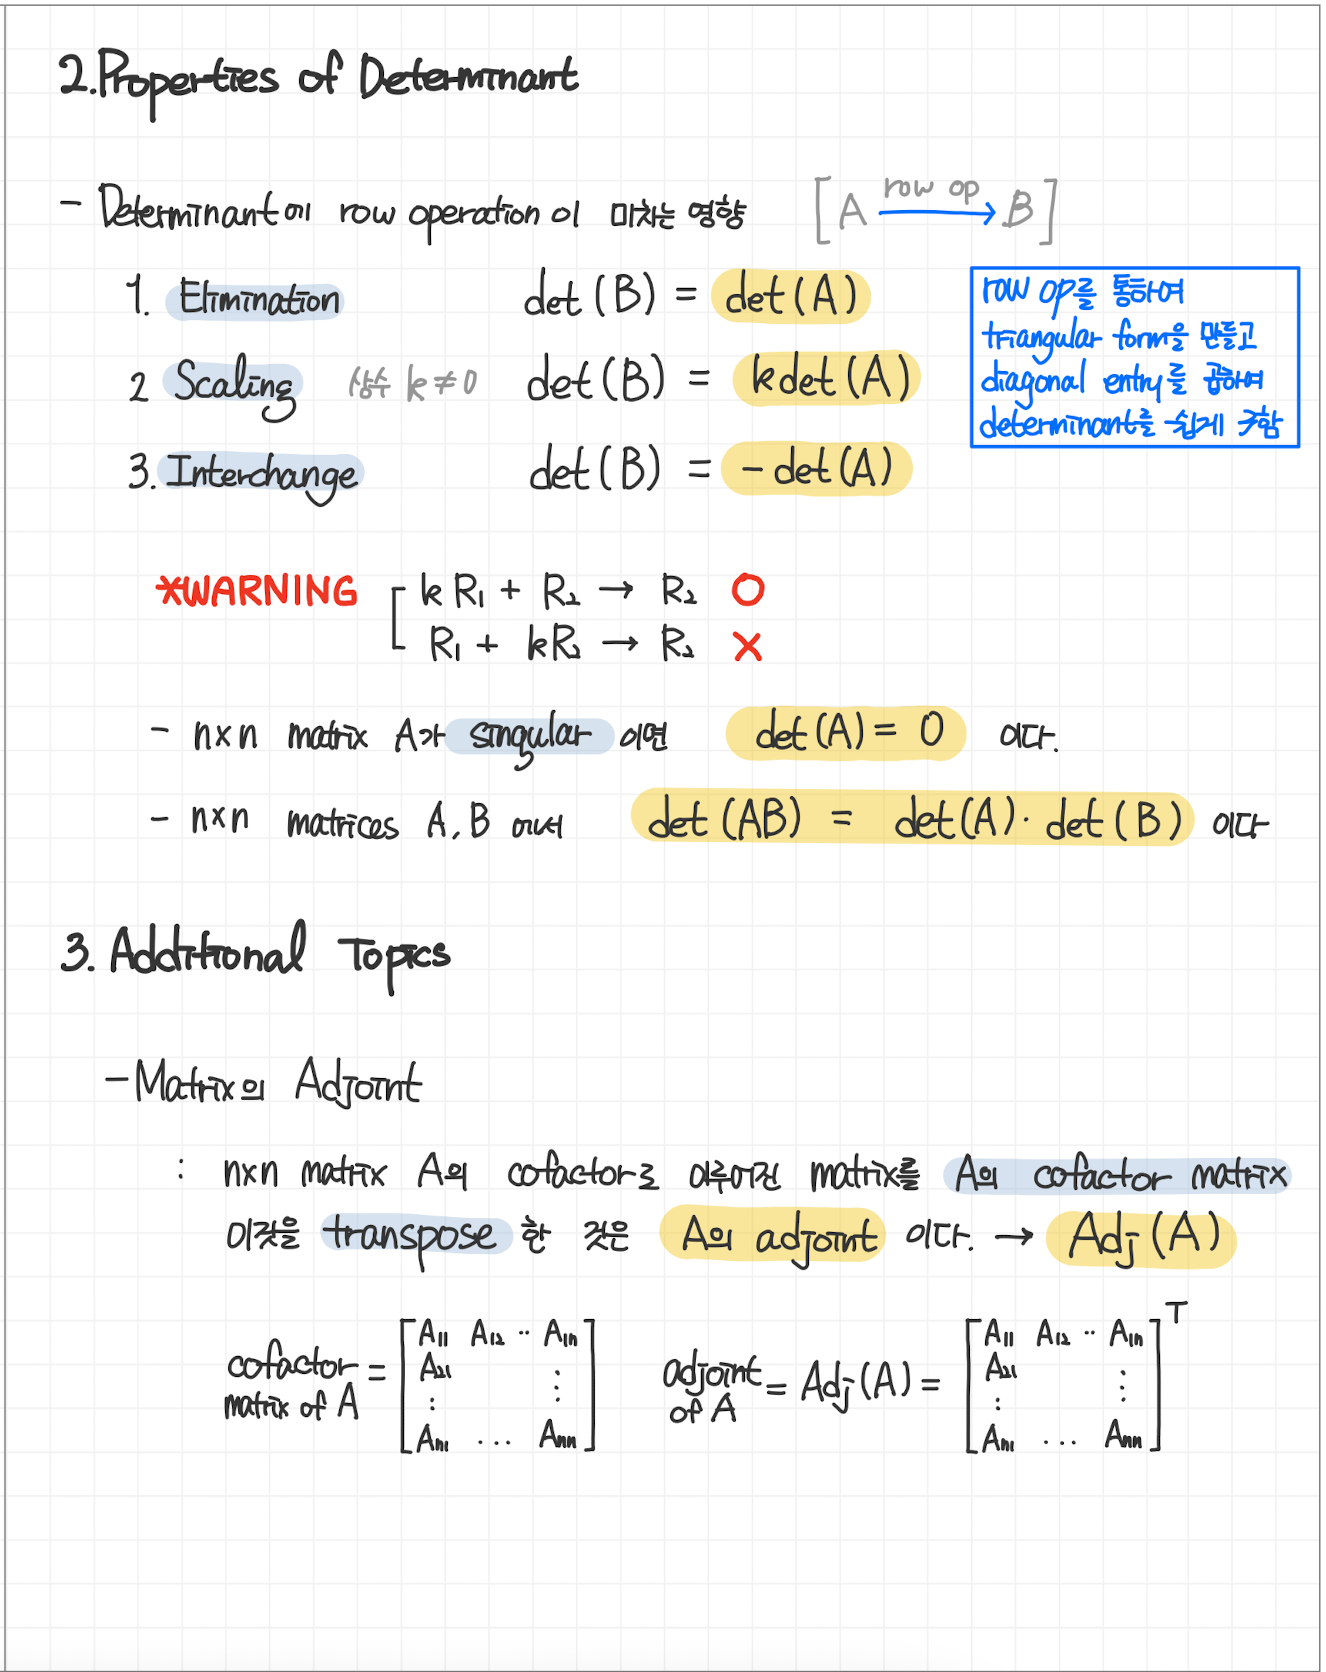 2. Properties of Determinant
- Determinant에 row operation이 미치는 영향 [A row op→ B]
1. Elimination det(B) = det(A)
2 Scaling 상수 k≠0 det(B) = kdet(A)
3. Interchange det(B) = -det(A)
row op를 통하여
triangular form을 만들고
diagonal entry를 곱하여
determinant를 쉽게 구함
*WARNING [ kR₁ + R₂ → R₂ O
R₁ + kR₂ → R₂ X
- n×n matrix A가 singular 이면 det(A) = 0 이다.
- n×n matrices A, B 에서 det(AB) = det(A)·det(B) 이다
3. Additional Topics
- Matrix의 Adjoint
: n×n matrix A의 cofactor로 이루어진 matrix를 A의 cofactor matrix
이것을 transpose 한 것은 A의 adjoint 이다. → Adj(A)
cofactor matrix of A = [A₁₁ A₁₂ ·· A₁ₙ
A₂₁ ⋮
⋮
Aₙ₁ ... Aₙₙ]
adjoint of A = Adj(A) = [A₁₁ A₁₂ ·· A₁ₙ
A₂₁ ⋮
⋮
Aₙ₁ ... Aₙₙ]ᵀ